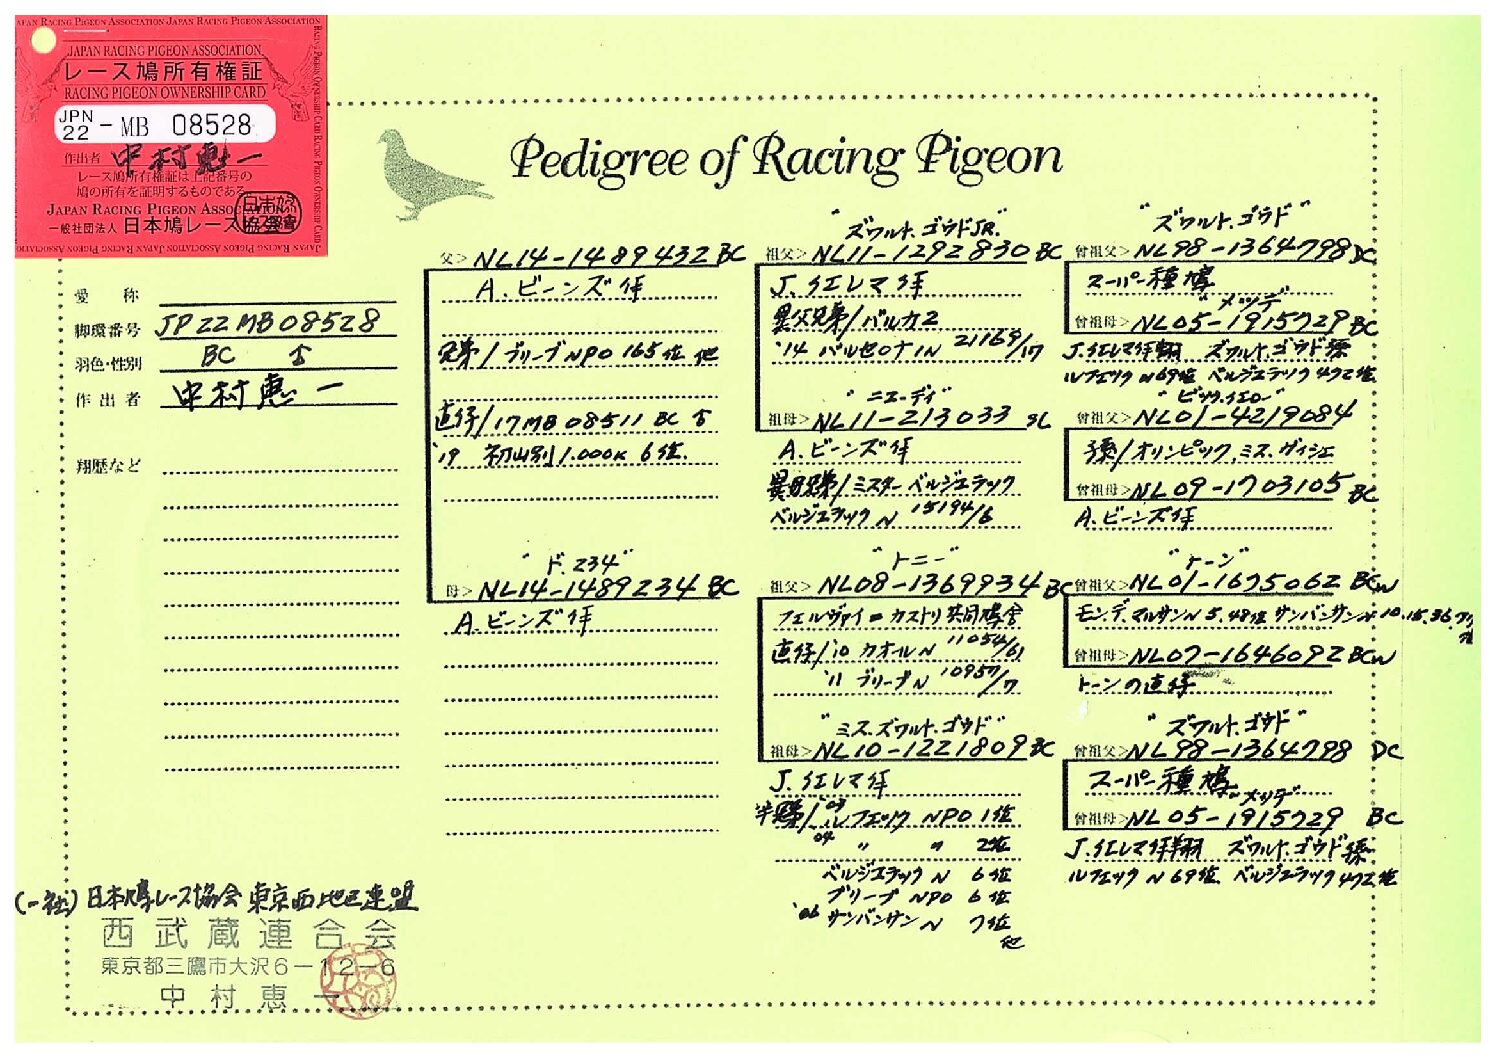 JAPAN RACING PIGEON ASSOCIATION·JAPAN RACING PIGEON ASSOCIATION
JAPAN RACING PIGEON ASSOCIATION
レース鳩所有権証
RACING PIGEON OWNERSHIP CARD
JPN
22 - MB 08528
作出者 中村恵一
レース鳩所有権証は上記番号の
鳩の所有を証明するものである。
JAPAN RACING PIGEON ASSOCIATION
一般社団法人 日本鳩レース協会
Pedigree of Racing Pigeon
愛称
脚環番号 JP22MB08528
羽色・性別 BC ♂
作出者 中村恵一
翔歴など
父> NL14-1489432 BC
A.ビーンズ作
兄弟/ブリーブNPO 165位 他
直仔/17MB08511 BC ♂
'19 初山別1.000K 6位.
"ド.234"
母> NL14-1489234 BC
A.ビーンズ作
"ズワルト.ゴウドJR."
祖父> NL11-1292830 BC
J.イエレマ作
異父兄弟/バルカ2
'14 バルセロナIN 21169/17
"ニエーディ"
祖母> NL11-213033
A.ビーンズ作
異母兄弟/ミスターベルジェラック
ベルジェラックN 15194/6
"トニー"
祖父> NL08-1369934 BC
フェルヴァイ=カストリ共同鳩舎
直仔/'10 カオールN 11054/61
'11 ブリーブN 10957/7
"ミス.ズワルト.ゴウド"
祖母> NL10-1221809 BC
J.イエレマ作
半兄弟/'03 ルフェック NPO 1位
'04 〃 〃 2位
ベルジェラックN 6位
ブリーブ NPO 6位
'06 サンバンサンN 7位
他
"ズワルト.ゴウド"
曾祖父> NL98-1364798 DC
スーパー種鳩
"メッデ"
曾祖母> NL05-1915729 BC
J.イエレマ作翔 ズワルト.ゴウド孫
ルフェックN69位 ベルジェラック472位
"ビッグ.イエロー"
曾祖父> NL01-4219084
孫/オリンピック.ミス.ヴィシェ
曾祖母> NL09-1703105 BC
A.ビーンズ作
"トーン"
曾祖父> NL01-1675062 BCW
モン.デ.マルサンN 5.48位 サンバンサンN 10.15.36.
曾祖母> NL07-1646092 BCW
トーンの直仔
"ズワルト.ゴウド"
曾祖父> NL98-1364798 DC
スーパー種鳩
"メッデ"
曾祖母> NL05-1915729 BC
J.イエレマ作翔 ズワルト.ゴウド孫
ルフェックN69位 ベルジェラック472位
(一社)日本鳩レース協会 東京西地区連盟
西武蔵連合会
東京都三鷹市大沢6-12-6
中村恵一